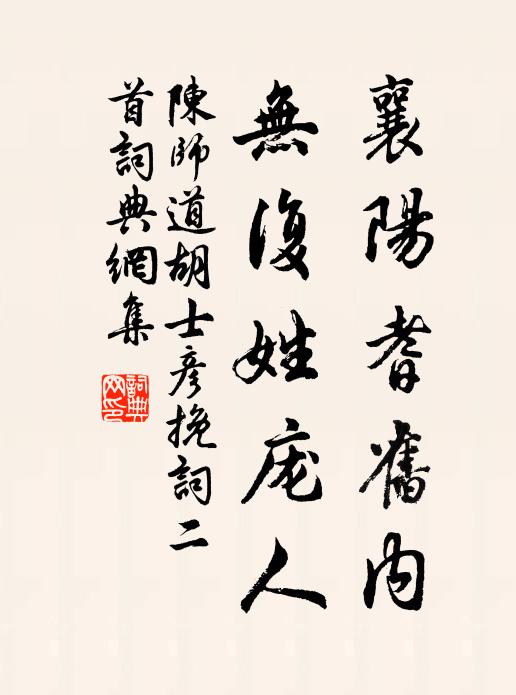 襄陽耆舊內
無復姓庞人
陳師道胡士彥挽詞二
首詞典網集
詞典
网印